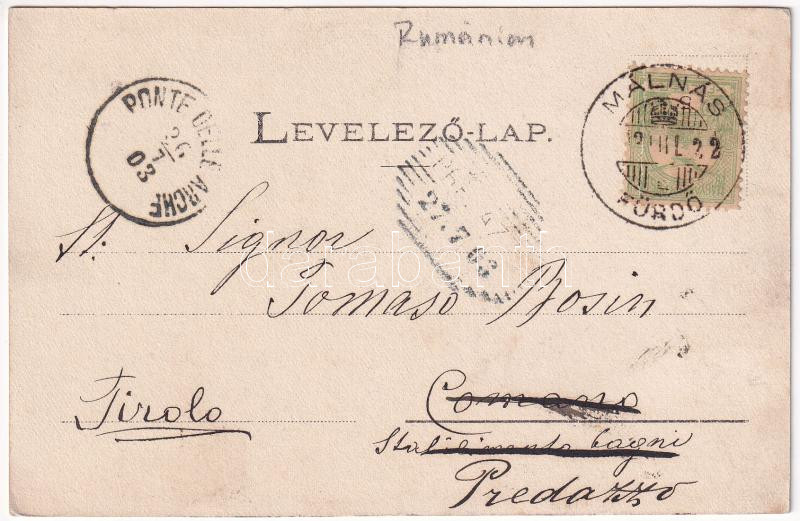 Rumänien
MÁLNÁS
FÜRDŐ
PONTE DELLE ARCHE
26
7
03
LEVELEZŐ-LAP.
27.7.03
darabanth
St. Signor
Tomaso Bosin
Tirolo
Comano
Stabilimento bagni
Predazzo